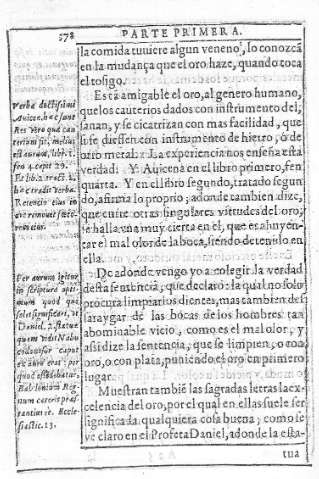 278
PARTE PRIMERA.
la comida tuuiere algun veneno, lo conozcã
en la mudança que el oro haze, quando toca
el tosigo.
Està amigable el oro, al genero humano,
que los cauterios dados con instrumento del,
sanan, y se cicatrizan con mas facilidad, que
si se diessen con instrumento de hierro, o de
otro metal: La experiencia nos enseña esta
verdad: Y Auicena en el libro primero, fen
quarta. Y en el libro segundo, tratado segun
do, afirma lo proprio; adonde tambien dize,
que entre otras singulares virtudes del oro,
se halla vna muy cierta en el, que es ahuyen-
tar el mal olor de la boca, siendo detenido en
ella.
De adonde vengo yo a colegir la verdad
desta sentencia, que declaro: la qual no solo
procura limpiar los dientes, mas tambien des
arraygar de las bocas de los hombres tan
abominable vicio, como es el mal olor, y
assi dize la sentencia, que se limpien, o con
oro, o con plata, puniendo el oro en primero
lugar.
Muestran tambiẽ las sagradas letras la ex-
celencia del oro, por el qual en ellas suele ser
significada qualquiera cosa buena; como se
ve claro en el Profeta Daniel, adonde la esta-
tua
Verba doctissimi
Auicen. hæc sunt
Res verò qua cau-
terium sit, melius
est aurum, lib. 1. f.
fro 4. capit. 29.
Et lib. 2. tract. 2.
hæc tradit verba.
Retentio eius in
ore remouet fœto-
rem eius.
Per aurum igitur
in scriptura opti-
mum quod que
solet significari, vt
Daniel. 2. statuæ
quem vidit Nabu
codonosor caput
ex auro erat: per
quod
Babilonicum Reg
num cæteris præ-
stantius
Eccle-
siastic. 23.